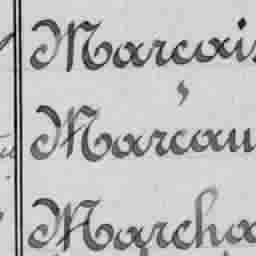 Marçais
Marcau
Marcha